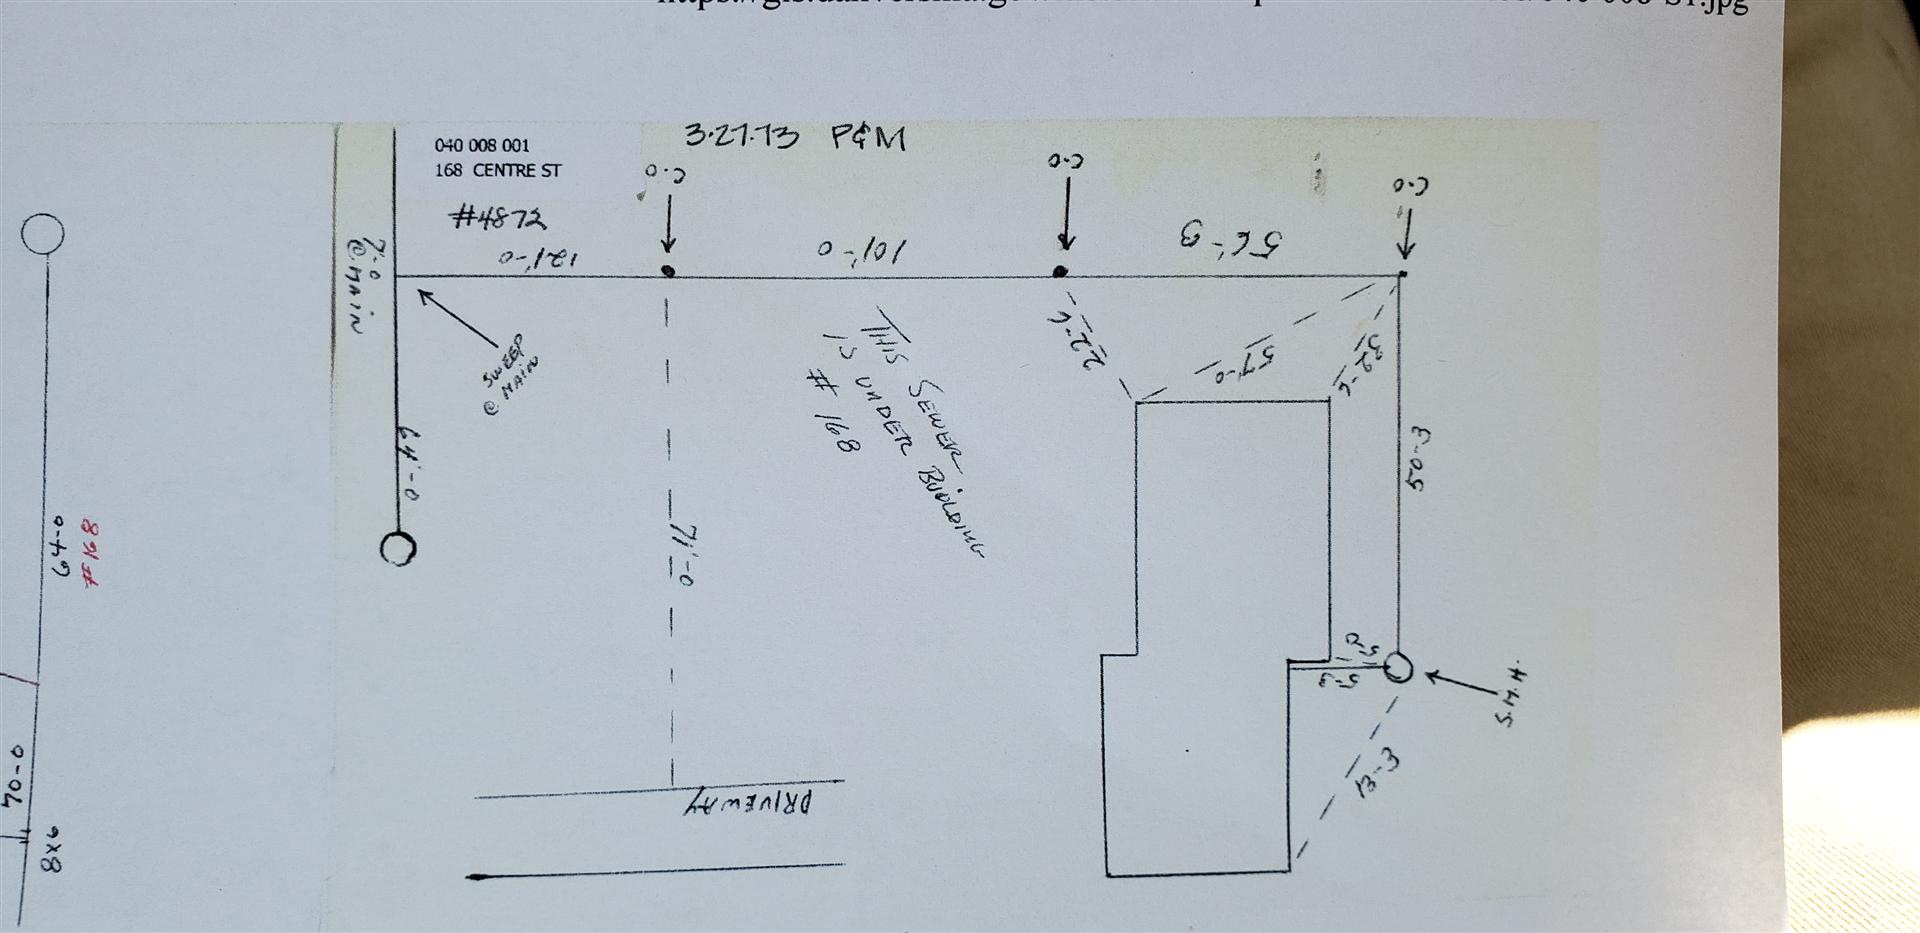 3·27·73 P&M
040 008 001
168 CENTRE ST
#4872
C·O
C·O
C·O
7'-0
@ MAIN
121'-0
101'-0
56'-3
SWEEP
@ MAIN
64'-0
THIS SEWER
IS UNDER BUILDING
# 168
22'-6
57'-0
32'-6
50-3
71'-0
5'-3
S.M.H.
13-3
DRIVEWAY
64-0
#168
70-0
8x6